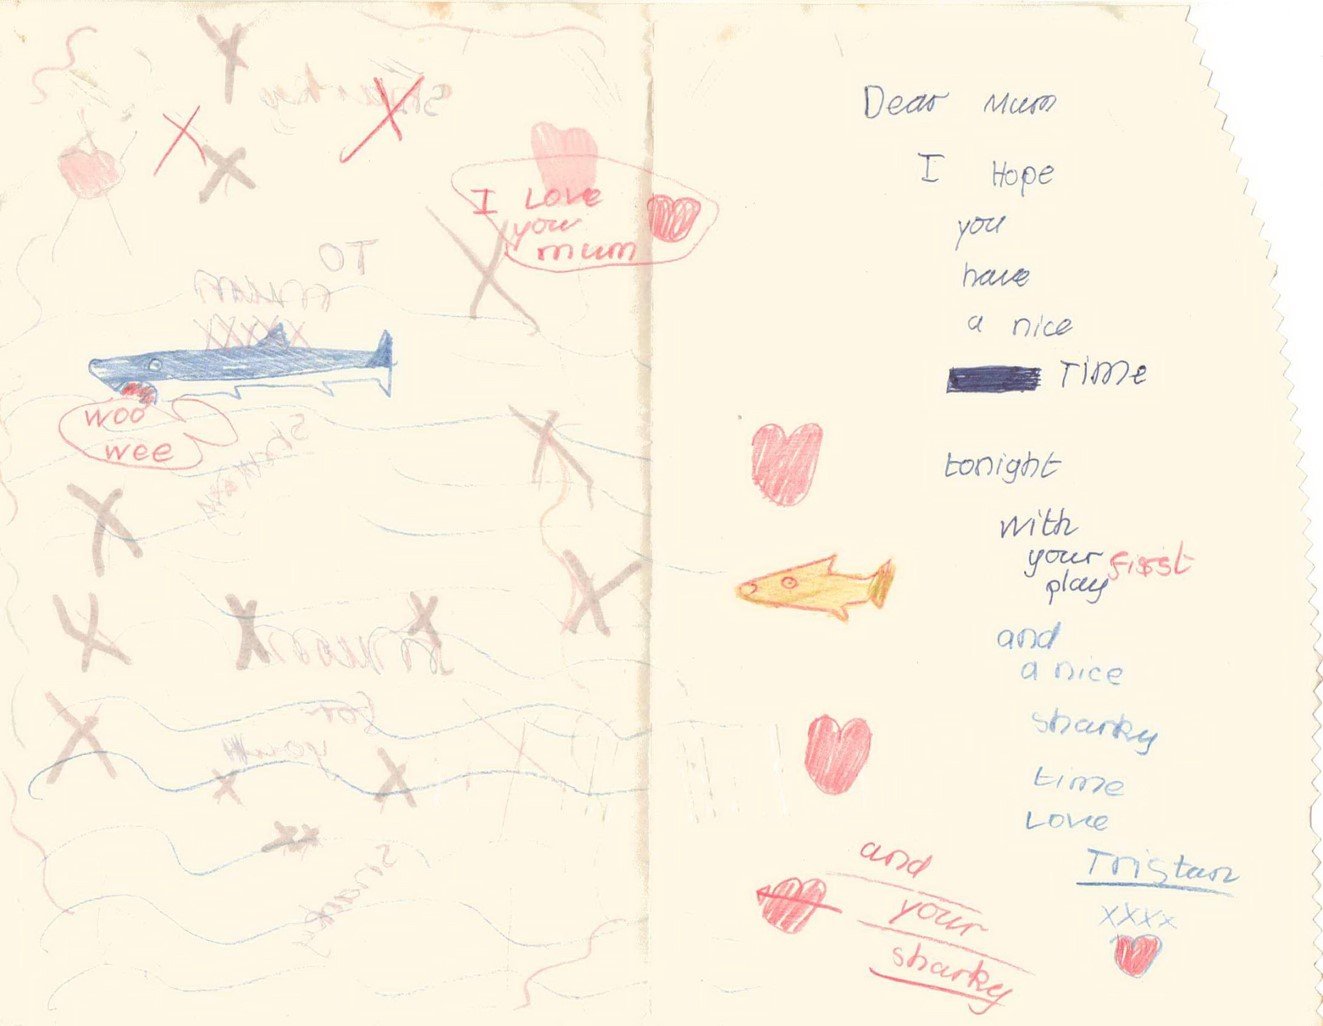 I Love
you
mum
woo
wee
Dear Mum
I Hope
you
have
a nice
TiMe
tonight
with
your first
play
and
a nice
sharky
time
Love
Tristan
xxxx
and
your
sharky